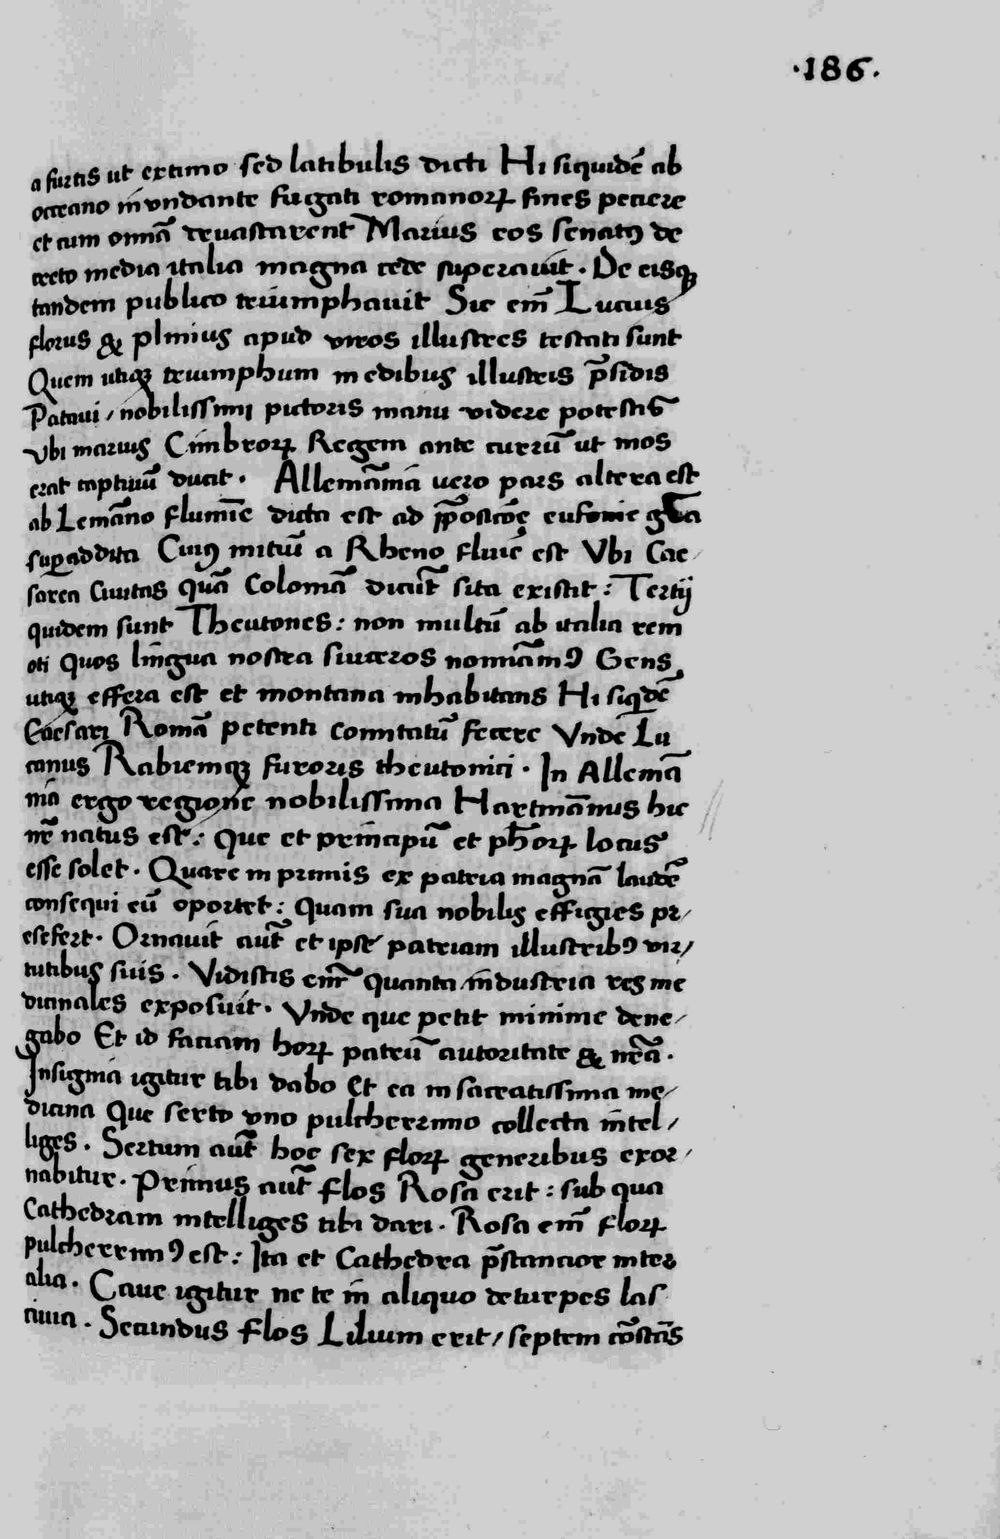 ·186·
a furtis ut extimo sed latibulis dicti Hi siquidē ab
occeano inūndante fugati romanoꝝ fines petiere
et cum omnā devastarent Marius eos senatꝰ de
creto media italia magna cede superavit · De eisqꝫ
tandem publico triūmphavit Sic em̄ Lucius
florus & plinius apud viros illustres testati sunt
Quem utiqꝫ triumphum in edibus illustris p̄sidis
Patavi / nobilissimi pictoris manu videre potestis
Vbi marius Cimbroꝝ Regem ante currū ut mos
erat captivū ducit · Allemāmā vero pars altera est
ab Lemāno flumīe dicta est ad p̄positōē eufonie gr̄a
suꝑaddita Cuiꝰ initiū a Rheno fluīe est Vbi Cae/
sarea Civitas quā Colomā dicūt sita existit : Tertij
quidem sunt Theutones : non multū ab italia rem
oti Quos lingua nostra sviceros nominamꝰ Gens
utiqꝫ effera est et montana inhabitans Hi siqdē
Caesari Romā petenti comitatū fecere Vnde Lu
canus Rabiemqꝫ furoris theutonici · In Allemā
niā ergo regione nobilissima Hartmānus hic
nr̄ natus est : Que et principū et ph̄oꝝ locus
esse solet · Quare in primis ex patria magnā laudē
consequi eū oportet : Quam sua nobilis effigies pr/
esefert · Ornavit aūt et ipse patriam illustribꝰ vir/
tutibus suis · Vidistis em̄ quanta industria res me
dicinales exposuit · Vnde que petit minime dene/
gabo Et id faciam hoꝝ patrū autoritate & nr̄a ·
Insignia igitur tibi dabo Et ea in sacratissima me/
dicina Que serto vno pulcherrimo collecta intel/
liges · Sertum aūt hoc sex floꝝ generibus exor/
nabitur · Primus aūt flos Rosa erit : sub qua
Cathedram intelliges tibi dari · Rosa em̄ floꝝ
pulcherrimꝰ est : Ita et Cathedra p̄stancior inter
alia · Cave igitur ne te in aliquo deturpes las
civia · Secundus flos Lilium erit / septem cōstās